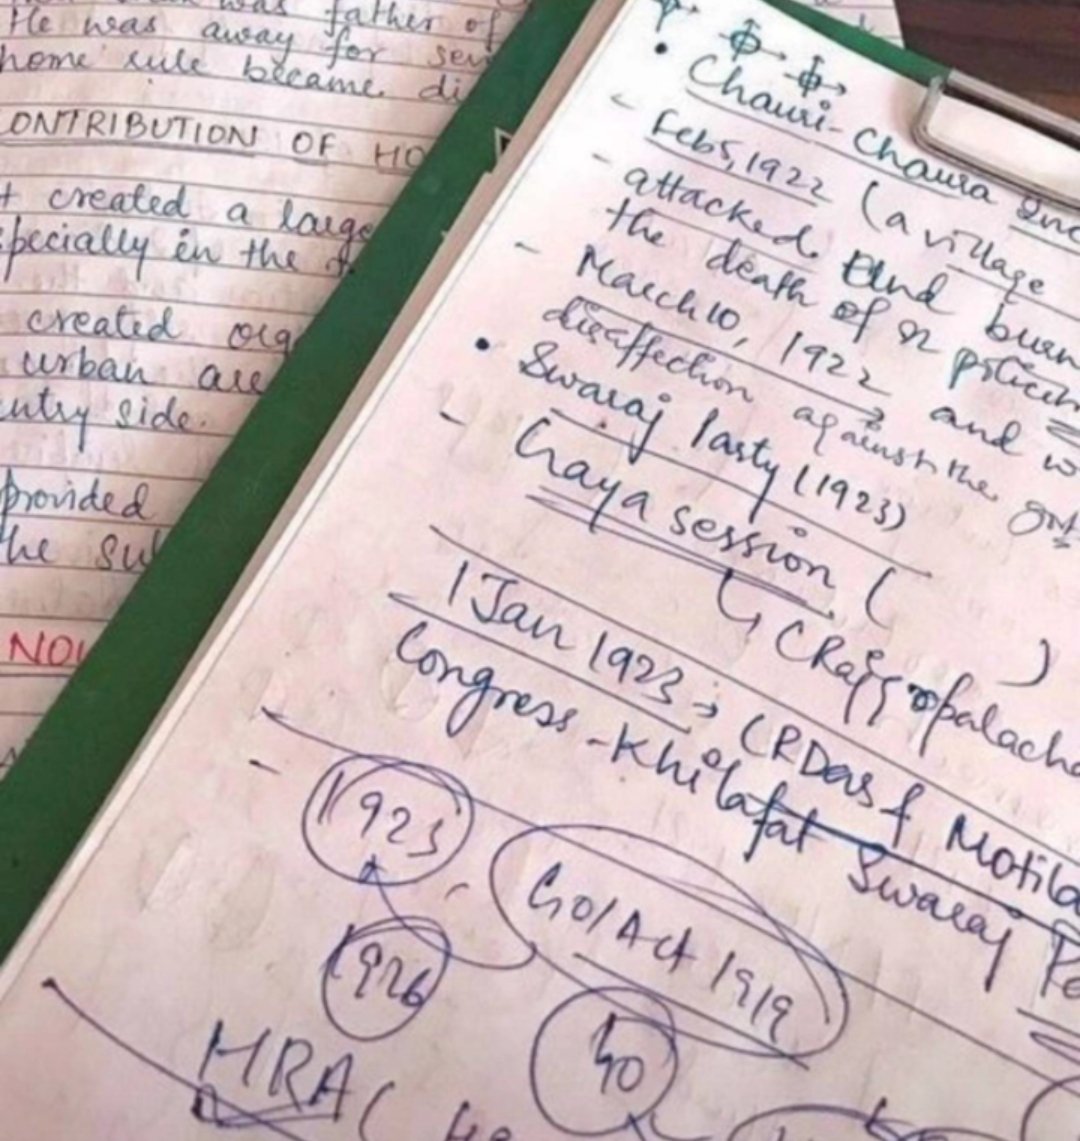 was father of
He was away for sev
home rule became di
CONTRIBUTION OF HO
t created a large
specially in the
created org
urban are
untry side.
provided
the su
NOV
• Chauri-Chaura Inc
Feb 5, 1922 (a village
attacked and burn
the death of 22 policem
- March 10, 1922 and w
disaffection against the govt
• Swaraj Party (1923)
- Gaya session (
)
↳ C Rajgopalacha
1 Jan 1923 → CR Das & Motila
Congress - Khilafat Swaraj Pa
- 1923
GOI Act 1919
1926
40
HRA (